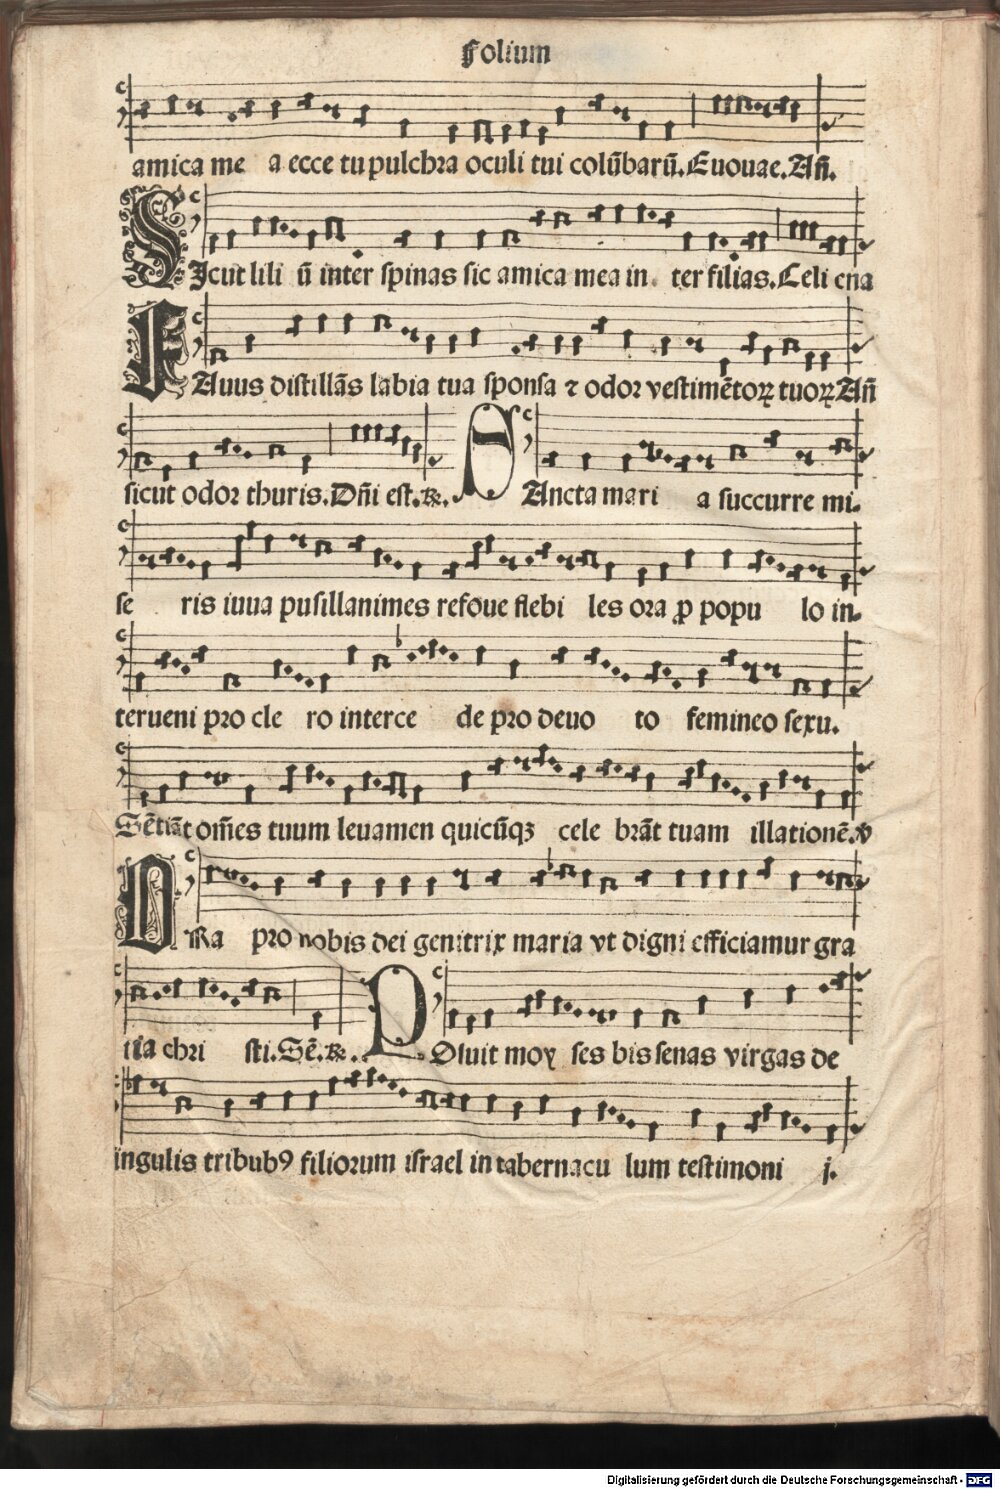 Folium
amica me a ecce tu pulchra oculi tui colūbarū. Euouae. Añ.
SIcut lili ū inter spinas sic amica mea in ter filias. Celi ena
FAuus distillās labia tua sponsa ⁊ odor vestimētoꝝ tuoꝝ Añ
sicut odor thuris. Dñi est. ℟. SAncta mari a succurre mi-
se ris iuua pusillanimes refoue flebi les ora ꝓ popu lo in-
terueni pro cle ro interce de pro deuo to femineo sexu.
Sētiāt om̄es tuum leuamen quicūqꝫ cele brāt tuam illationē. v
ORa pro nobis dei genitrix maria vt digni efficiamur gra
tia chri sti. Sē. ℟. POluit moy ses bis senas virgas de
ingulis tribubꝰ filiorum israel in tabernacu lum testimoni j.
Digitalisierung gefördert durch die Deutsche Forschungsgemeinschaft - DFG